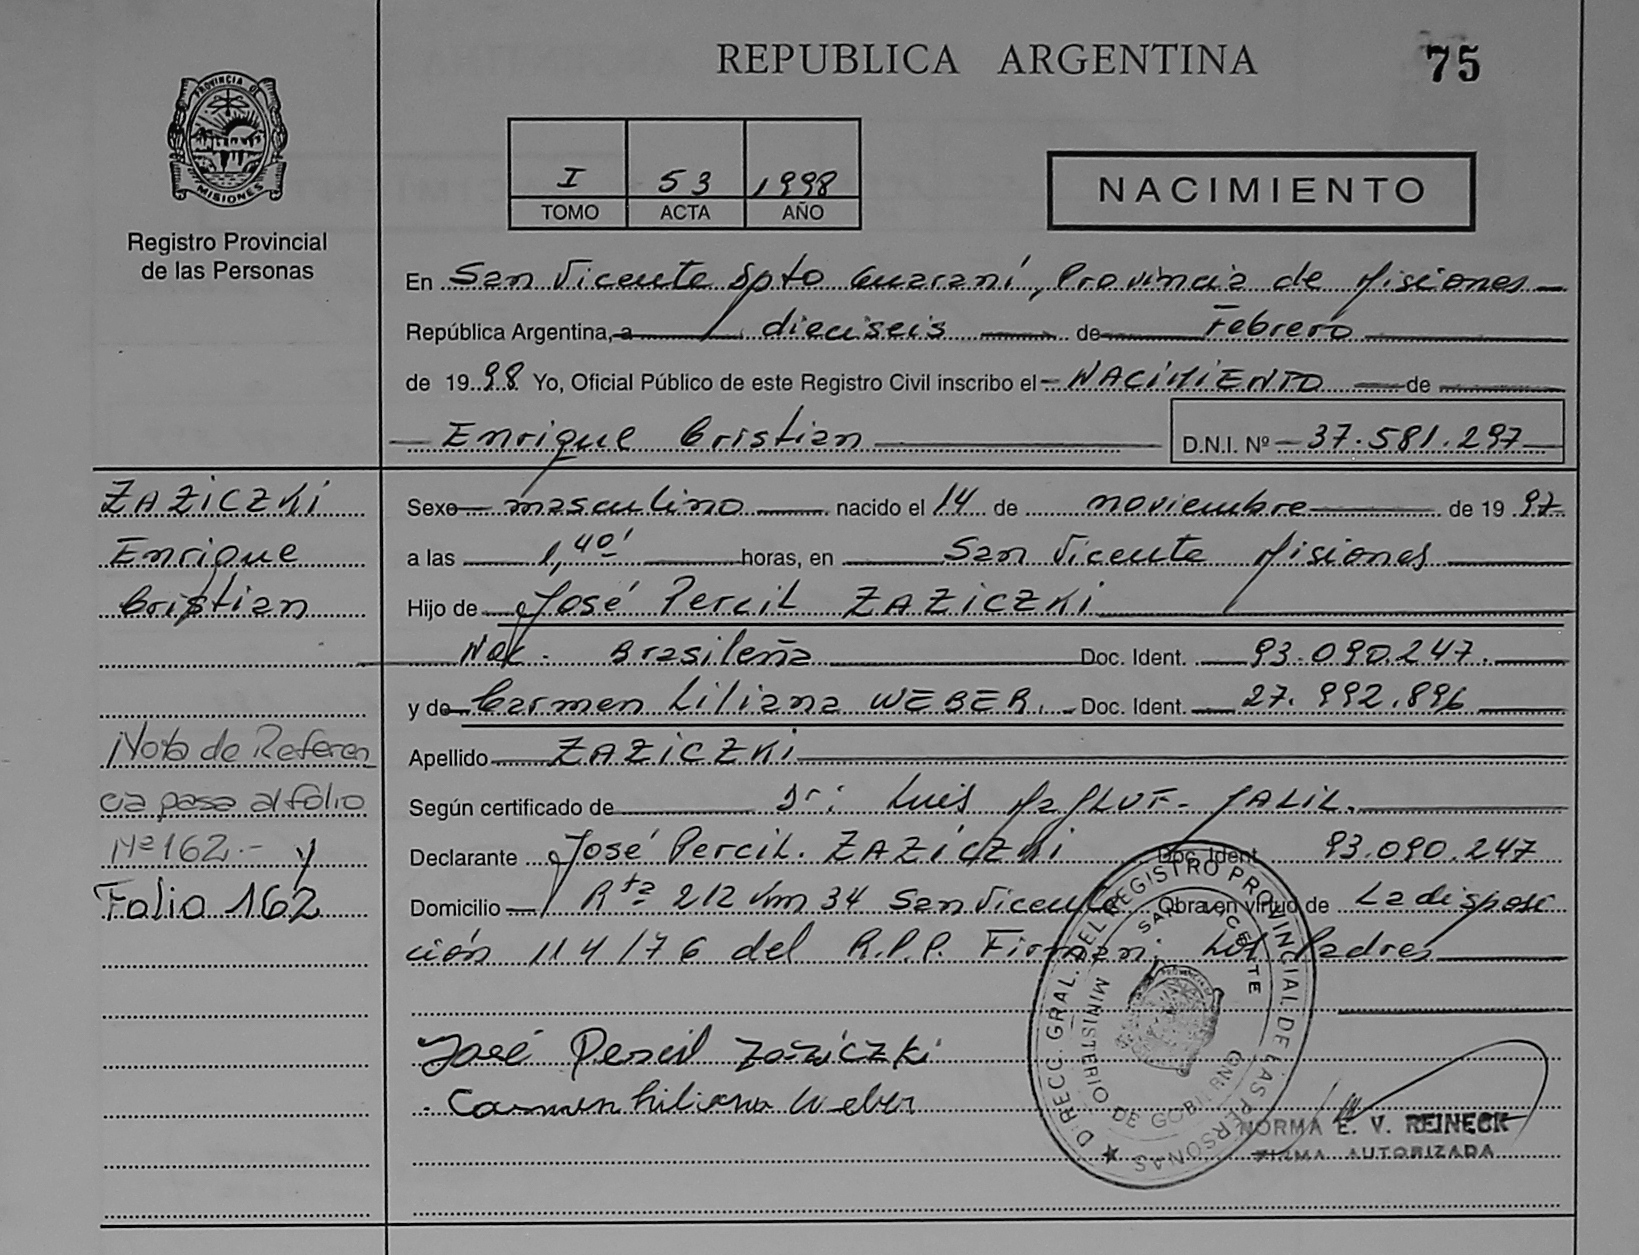 REPUBLICA ARGENTINA
75
PROVINCIA DE
MISIONES
Registro Provincial
de las Personas
I 53 1998
TOMO ACTA AÑO
NACIMIENTO
En San Vicente Dpto Guaraní, Provincia de Misiones
República Argentina, a dieciseis de Febrero
de 1998 Yo, Oficial Público de este Registro Civil inscribo el NACIMIENTO de
Enrique Cristian D.N.I. Nº 37.581.297
ZAZICZKI
Enrique
Cristian
Sexo masculino nacido el 14 de noviembre de 1997
a las 1,40' horas, en San Vicente Misiones
Hijo de José Percil ZAZICZKI
Nac. Brasileña Doc. Ident. 93.090.247.
y de Carmen Liliana WEBER. Doc. Ident. 27.992.896
Nota de Referen
cia pasa al folio
Nº 162.- y
Folio 162
Apellido ZAZICZKI
Según certificado de Dr: Luis JALIL.
Declarante José Percil. ZAZICZKI Doc. Ident. 93.090.247
Domicilio Rta 212 km 34 San Vicente Obra en virtud de La disposi
ción 114/76 del R.P.P. Firman: Los Padres
José Percil Zaziczki
Carmen Liliana Weber
DIRECC. GRAL. DEL REGISTRO PROVINCIAL DE LAS PERSONAS
SAN VICENTE
MINISTERIO DE GOBIERNO
NORMA E. V. REINECK
FIRMA AUTORIZADA